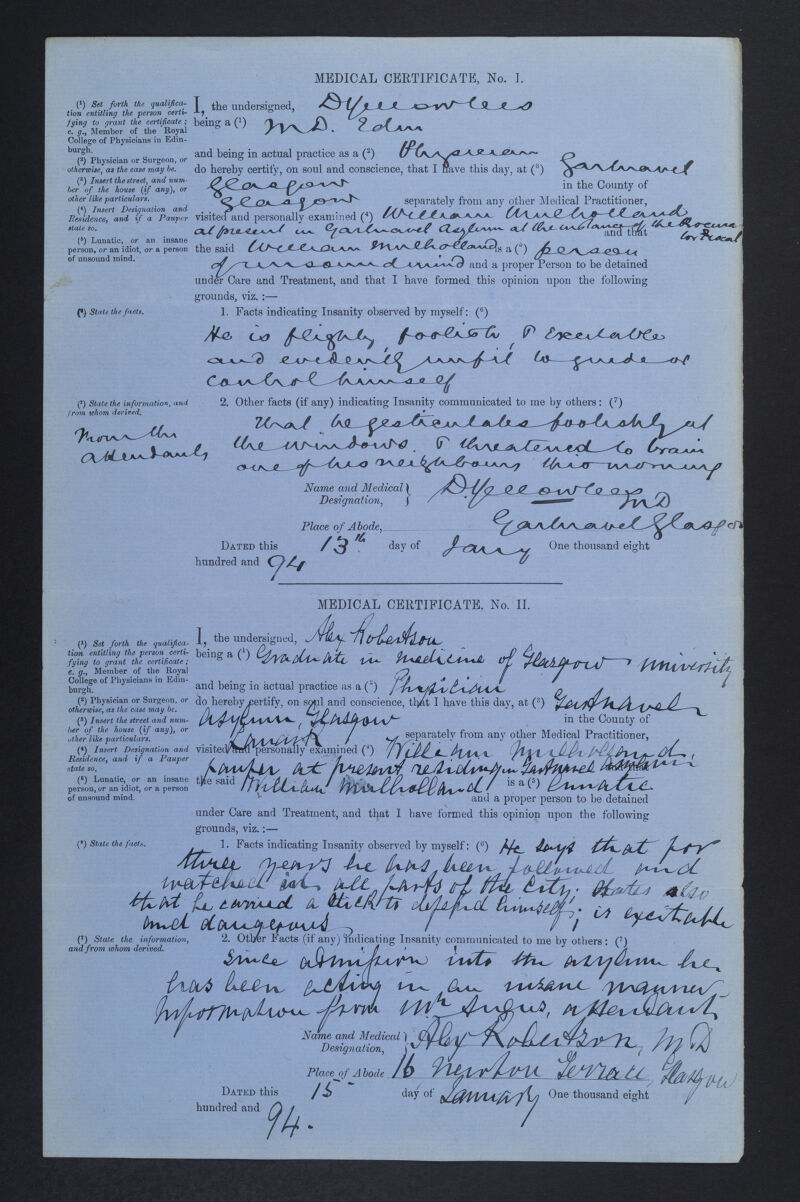 MEDICAL CERTIFICATE, No. I.
(¹) Set forth the qualifica-
tion entitling the person certi-
fying to grant the certificate;
e. g., Member of the Royal
College of Physicians in Edin-
burgh.
(²) Physician or Surgeon, or
otherwise, as the case may be.
(³) Insert the street, and num-
ber of the house (if any), or
other like particulars.
(⁴) Insert Designation and
Residence, and if a Pauper
state so.
(⁵) Lunatic, or an insane
person, or an idiot, or a person
of unsound mind.
I, the undersigned, D Yellowlees
being a (¹) M D. Edin
and being in actual practice as a (²) Physician
do hereby certify, on soul and conscience, that I have this day, at (³) Gartnavel
Glasgow in the County of
Glasgow separately from any other Medical Practitioner,
visited and personally examined (⁴) William Mulholland
at present in Gartnavel Asylum at the instance of the Procura
tor Fiscal and that
the said William Mulholland is a (⁵) person
of unsound mind and a proper Person to be detained
under Care and Treatment, and that I have formed this opinion upon the following
grounds, viz. :—
(⁶) State the facts.
1. Facts indicating Insanity observed by myself: (⁶)
He is flighty, foolish, & Excitable
and evidently unfit to guide or
control himself
(⁷) State the information, and
from whom derived.
2. Other facts (if any) indicating Insanity communicated to me by others: (⁷)
From the
attendants
That he gesticulates foolishly at
the windows. & threatened to brain
one of his neighbours this morning
Name and Medical
Designation, D. Yellowlees MD
Place of Abode, Gartnavel Glasgow
DATED this 13th day of Jany One thousand eight
hundred and 94
MEDICAL CERTIFICATE, No. II.
(¹) Set forth the qualifica-
tion entitling the person certi-
fying to grant the certificate;
e. g., Member of the Royal
College of Physicians in Edin-
burgh.
(²) Physician or Surgeon, or
otherwise, as the case may be.
(³) Insert the street and num-
ber of the house (if any), or
other like particulars.
(⁴) Insert Designation and
Residence, and if a Pauper
state so.
(⁵) Lunatic, or an insane
person, or an idiot, or a person
of unsound mind.
I, the undersigned, Alex Robertson
being a (¹) Graduate in medicine of Glasgow University
and being in actual practice as a (²) Physician
do hereby certify, on soul and conscience, that I have this day, at (³) Gartnavel
Asylum, Glasgow in the County of
Lanark separately from any other Medical Practitioner,
visited and personally examined (⁴) William Mulholland
pauper at present residing in Gartnavel Asylum
the said William Mulholland is a (⁵) Lunatic
and a proper person to be detained
under Care and Treatment, and that I have formed this opinion upon the following
grounds, viz. :—
(⁶) State the facts.
1. Facts indicating Insanity observed by myself: (⁶) He says that for
three years he has been followed and
watched in all parts of the City; States also
that he carried a stick to defend himself; is excitable
and dangerous
(⁷) State the information,
and from whom derived.
2. Other Facts (if any) indicating Insanity communicated to me by others: (⁷)
Since admission into the asylum he
has been acting in an insane manner
Information from Mr Angus, attendant
Name and Medical
Designation, Alex Robertson, M D
Place of Abode 16 Newton Terrace, Glasgow
DATED this 15 day of January One thousand eight
hundred and 94.